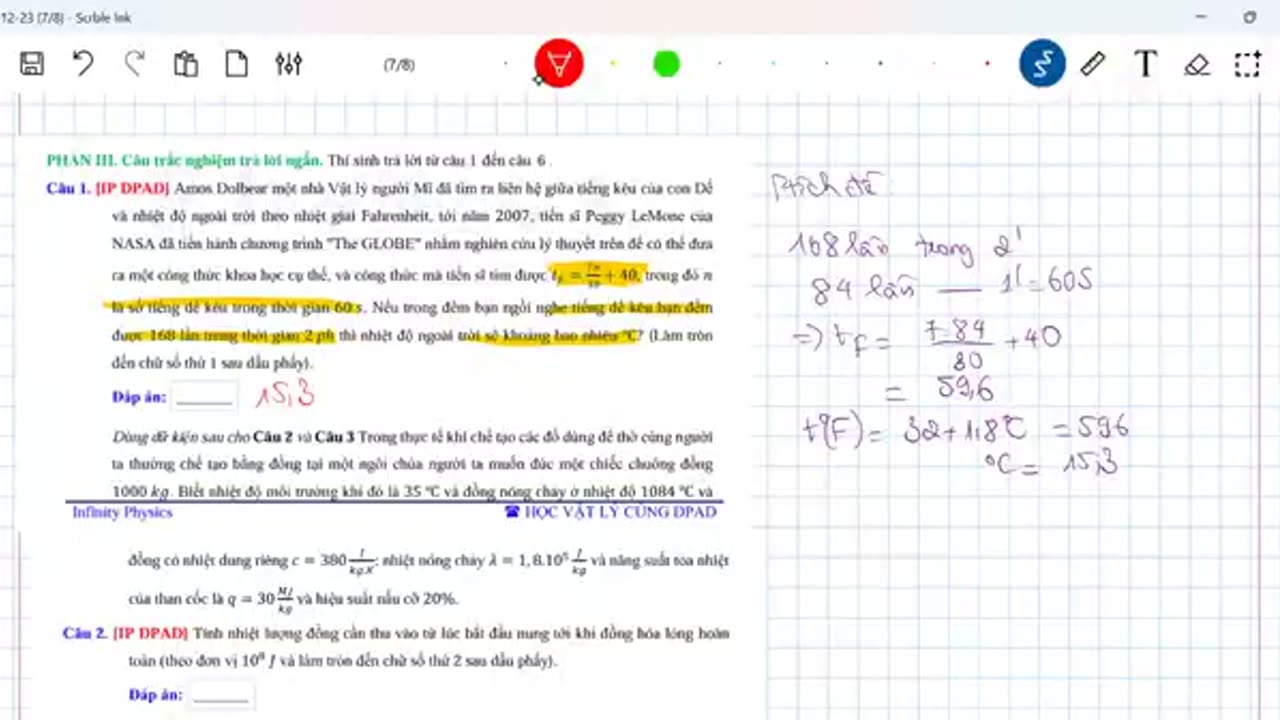 12-23 (7/8) - Scrble Ink
(7/8)
PHẦN III. Câu trắc nghiệm trả lời ngắn. Thí sinh trả lời từ câu 1 đến câu 6.
Câu 1. [IP DPAD] Amos Dolbear một nhà Vật lý người Mĩ đã tìm ra liên hệ giữa tiếng kêu của con Dế
và nhiệt độ ngoài trời theo nhiệt giai Fahrenheit, tới năm 2007, tiến sĩ Peggy LeMone của
NASA đã tiến hành chương trình "The GLOBE" nhằm nghiên cứu lý thuyết trên để có thể đưa
ra một công thức khoa học cụ thể, và công thức mà tiến sĩ tìm được + 40, trong đó n
là số tiếng dế kêu trong thời gian 60 s. Nếu trong đêm bạn ngồi nghe tiếng dế kêu bạn đếm
được 168 lần trong thời gian 2 ph thì nhiệt độ ngoài trời sẽ khoảng bao nhiêu °C? (Làm tròn
đến chữ số thứ 1 sau dấu phẩy).
Đáp án: 15,3
Dùng dữ kiện sau cho Câu 2 và Câu 3 Trong thực tế khi chế tạo các đồ dùng để thờ cúng người
ta thường chế tạo bằng đồng tại một ngôi chùa người ta muốn đúc một chiếc chuông đồng
1000 kg. Biết nhiệt độ môi trường khi đó là 35 °C và đồng nóng chảy ở nhiệt độ 1084 °C và
Infinity Physics ☎ HỌC VẬT LÝ CÙNG DPAD
đồng có nhiệt dung riêng c = 380 J/kg.K; nhiệt nóng chảy λ = 1,8.10⁵ J/kg và năng suất tỏa nhiệt
của than cốc là q = 30 MJ/kg và hiệu suất nấu cỡ 20%.
Câu 2. [IP DPAD] Tính nhiệt lượng đồng cần thu vào từ lúc bắt đầu nung tới khi đồng hóa lỏng hoàn
toàn (theo đơn vị 10⁸ J và làm tròn đến chữ số thứ 2 sau dấu phẩy).
Đáp án:
168 lần trong 2'
84 lần — 1' = 60s
=> t_F = 7.84/80 + 40
= 59,6
t°(F) = 32 + 1,8°C = 59,6
°C = 15,3